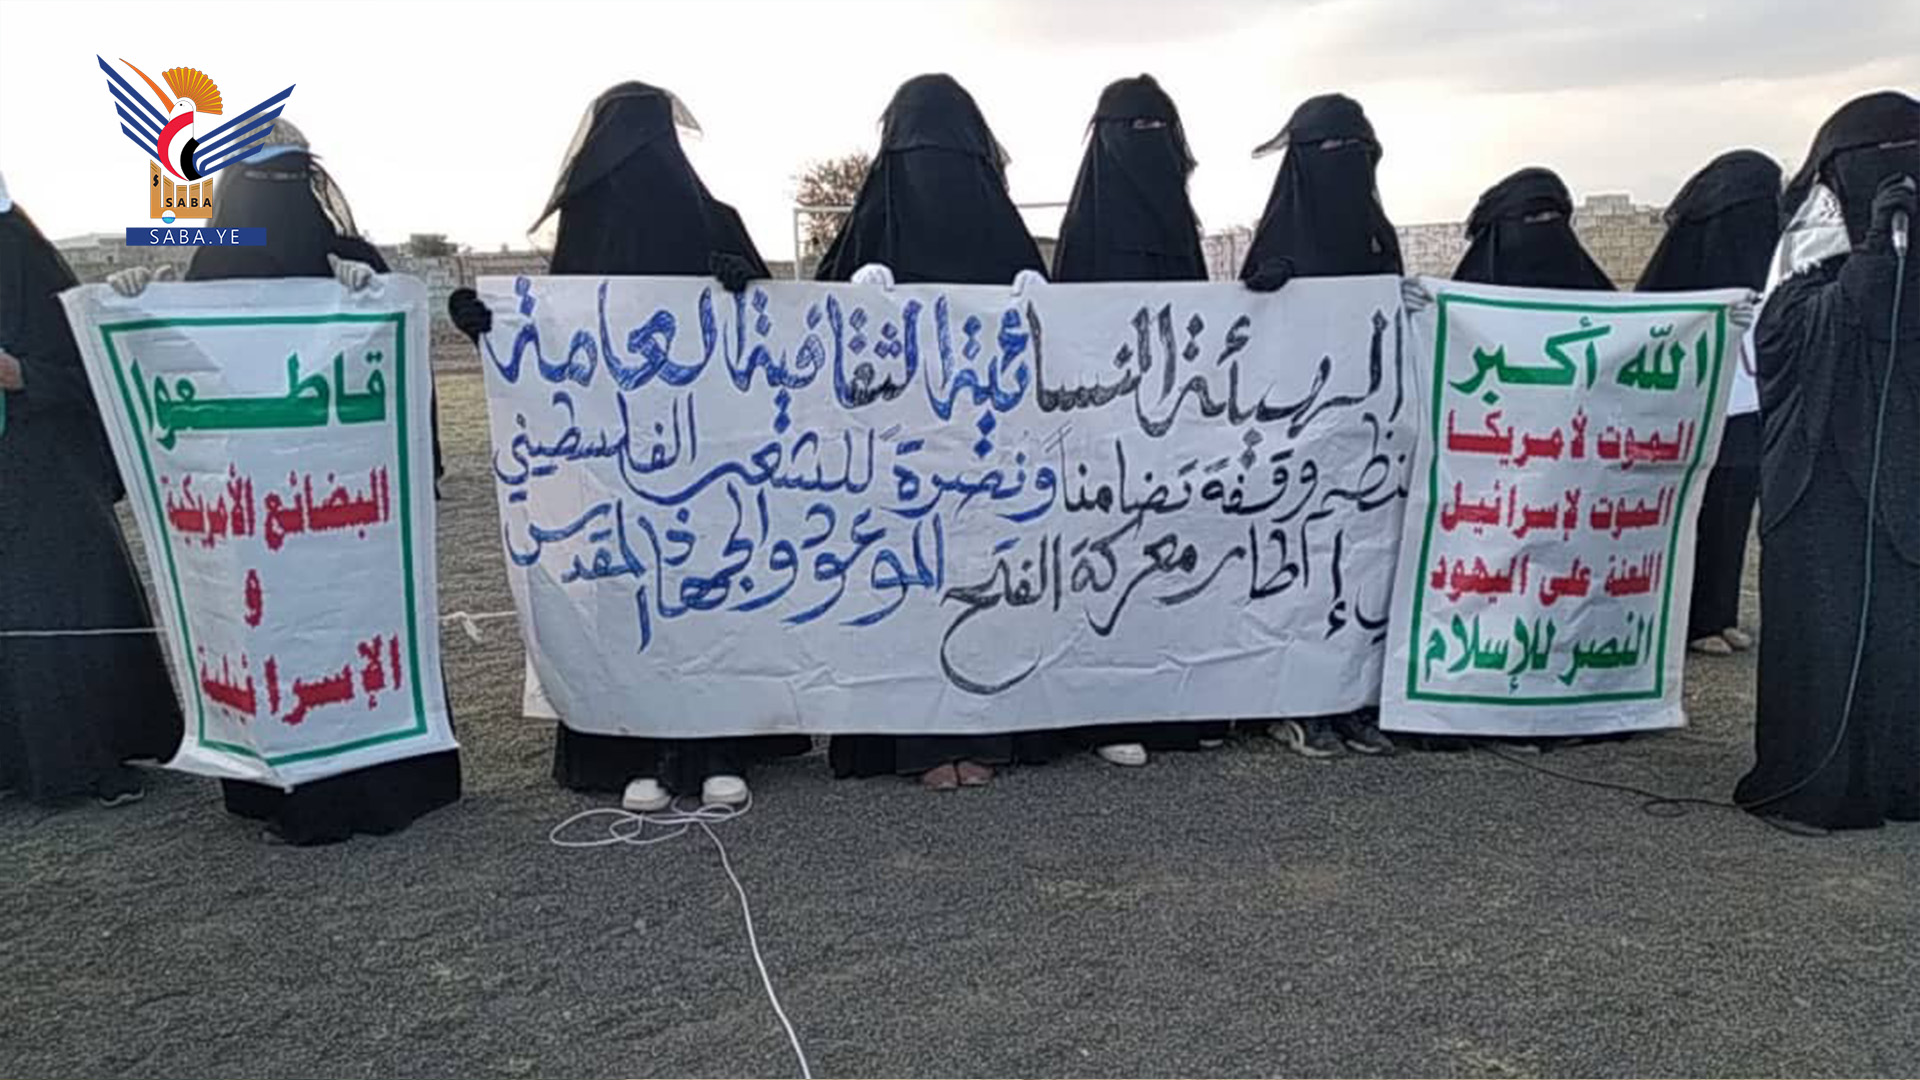 SABA
SABA.YE
الله أكبر
الموت لأمريكا
الموت لإسرائيل
اللعنة على اليهود
النصر للإسلام
الهيئة النسائية الثقافية العامة
نظم وقفة تضامناً ونصرة للشعب الفلسطيني
إطار معركة الفتح الموعود والجهاد المقدس
قاطعوا
البضائع الأمريكية
و
الإسرائيلية